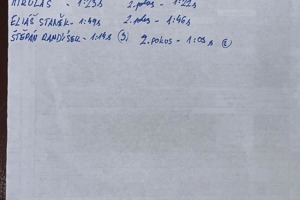 MIKULÁŠ - 1:23s 2. pokus - 1:22s
ELIÁŠ STANĚK - 1:49s 2. pokus - 1:46s
ŠTĚPÁN 1:19s (3) 2. pokus - 1:05s (2)